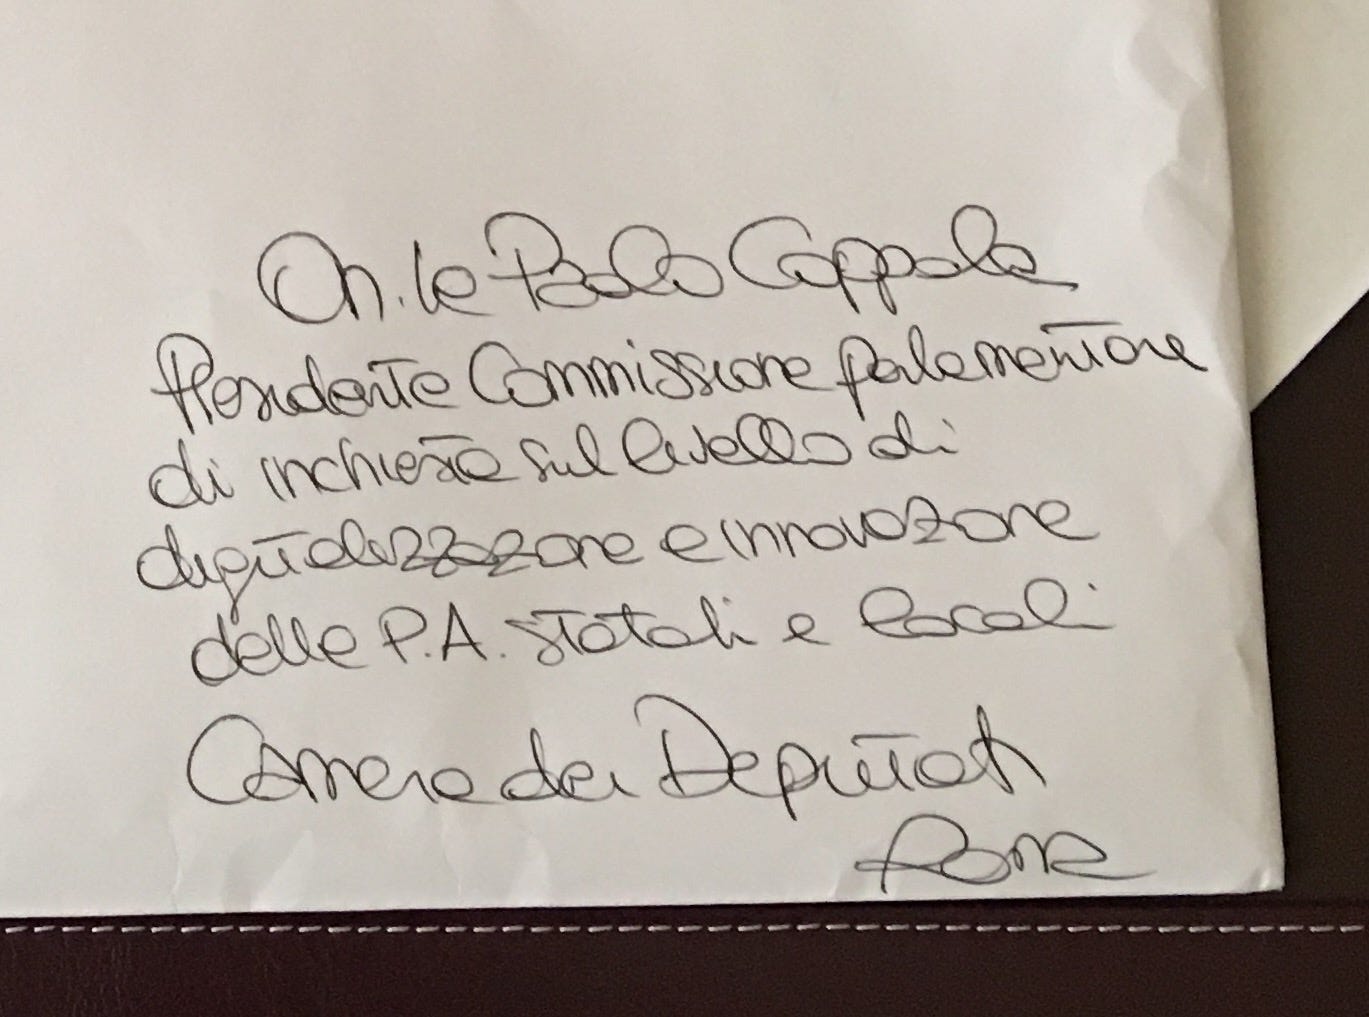 On.le Paolo Coppola
Presidente Commissione parlamentare
di inchiesta sul livello di
digitalizzazione e innovazione
delle P.A. statali e locali
Camera dei Deputati
Roma